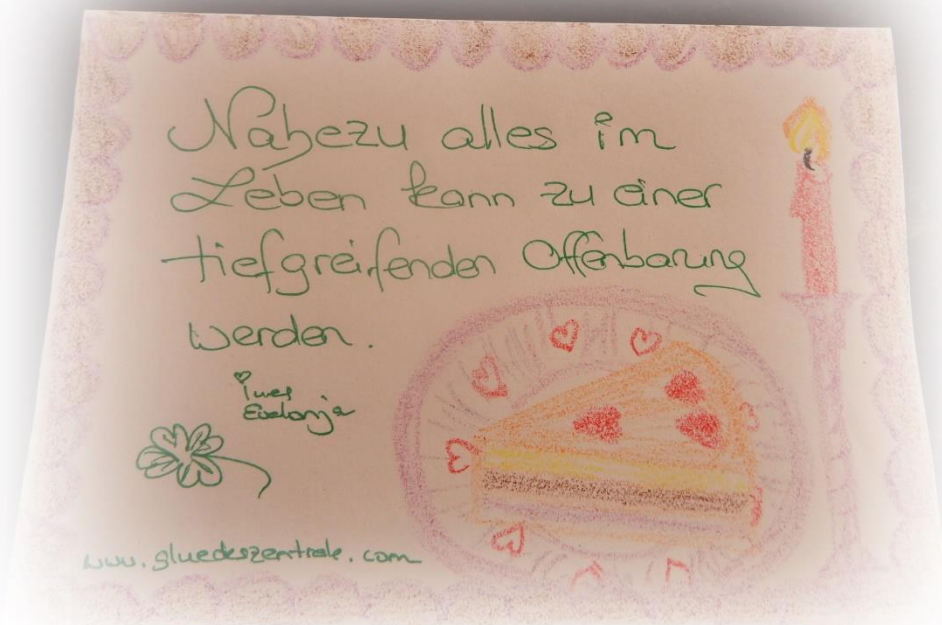 Nahezu alles im
Leben kann zu einer
tiefgreifenden Offenbarung
werden.
Ines
Evelonja
www.glueckszentrale.com